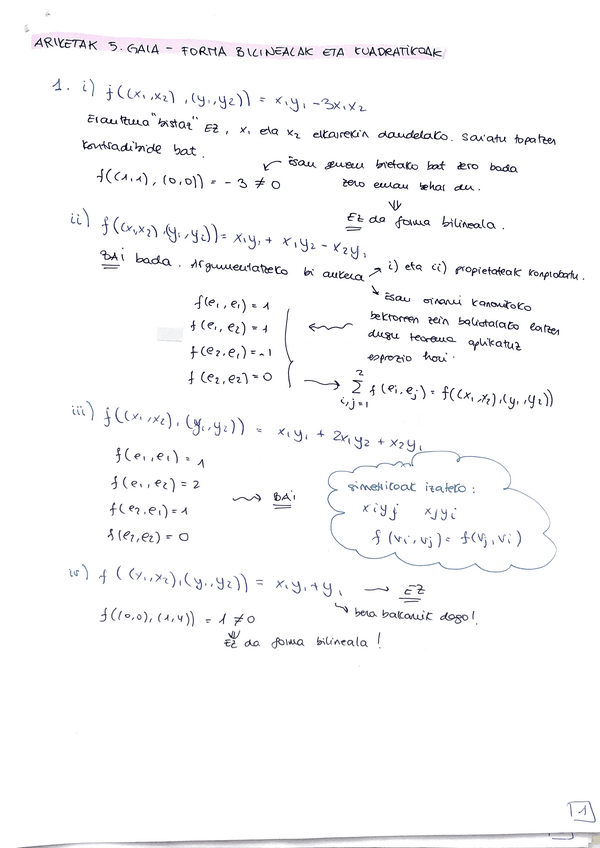 ARIKETAK 5. GAIA - FORMA BILINEALAK ETA KUADRATIKOAK
1. i) f((x₁,x₂),(y₁,y₂)) = x₁y₁ - 3x₁x₂
Erantzuna "bistaz" EZ, x₁ eta x₂ elkarrekin daudelako. Saiatu topatzen
kontradibide bat.
izan genuen bietako bat zero bada
f((1,1),(0,0)) = -3 ≠ 0
zero eman behar du.
⇓
EZ da forma bilineala.
ii) f((x₁,x₂),(y₁,y₂)) = x₁y₁ + x₁y₂ - x₂y₁
BAI bada. Argumentatzeko bi aukera → i) eta ii) propietateak konprobatu.
↘ izan oinarri kanonikoko
bektoreen zein baliotarako
dugu teorema aplikatuz
espresio hori.
f(e₁,e₁) = 1
f(e₁,e₂) = 1
f(e₂,e₁) = -1
f(e₂,e₂) = 0
→ Σ²ᵢ,ⱼ₌₁ f(eᵢ,eⱼ) = f((x₁,x₂),(y₁,y₂))
iii) f((x₁,x₂),(y₁,y₂)) = x₁y₁ + 2x₁y₂ + x₂y₁
f(e₁,e₁) = 1
f(e₁,e₂) = 2
f(e₂,e₁) = 1
f(e₂,e₂) = 0
⇝ BAI
simetrikoak izateko:
xᵢyⱼ xⱼyᵢ
f(vᵢ,vⱼ) = f(vⱼ,vᵢ)
iv) f((x₁,x₂),(y₁,y₂)) = x₁y₁ + y₁ ⇝ EZ
↘ bera bakarrik dago!
f((0,0),(1,4)) = 1 ≠ 0
⇓
EZ da forma bilineala!
1